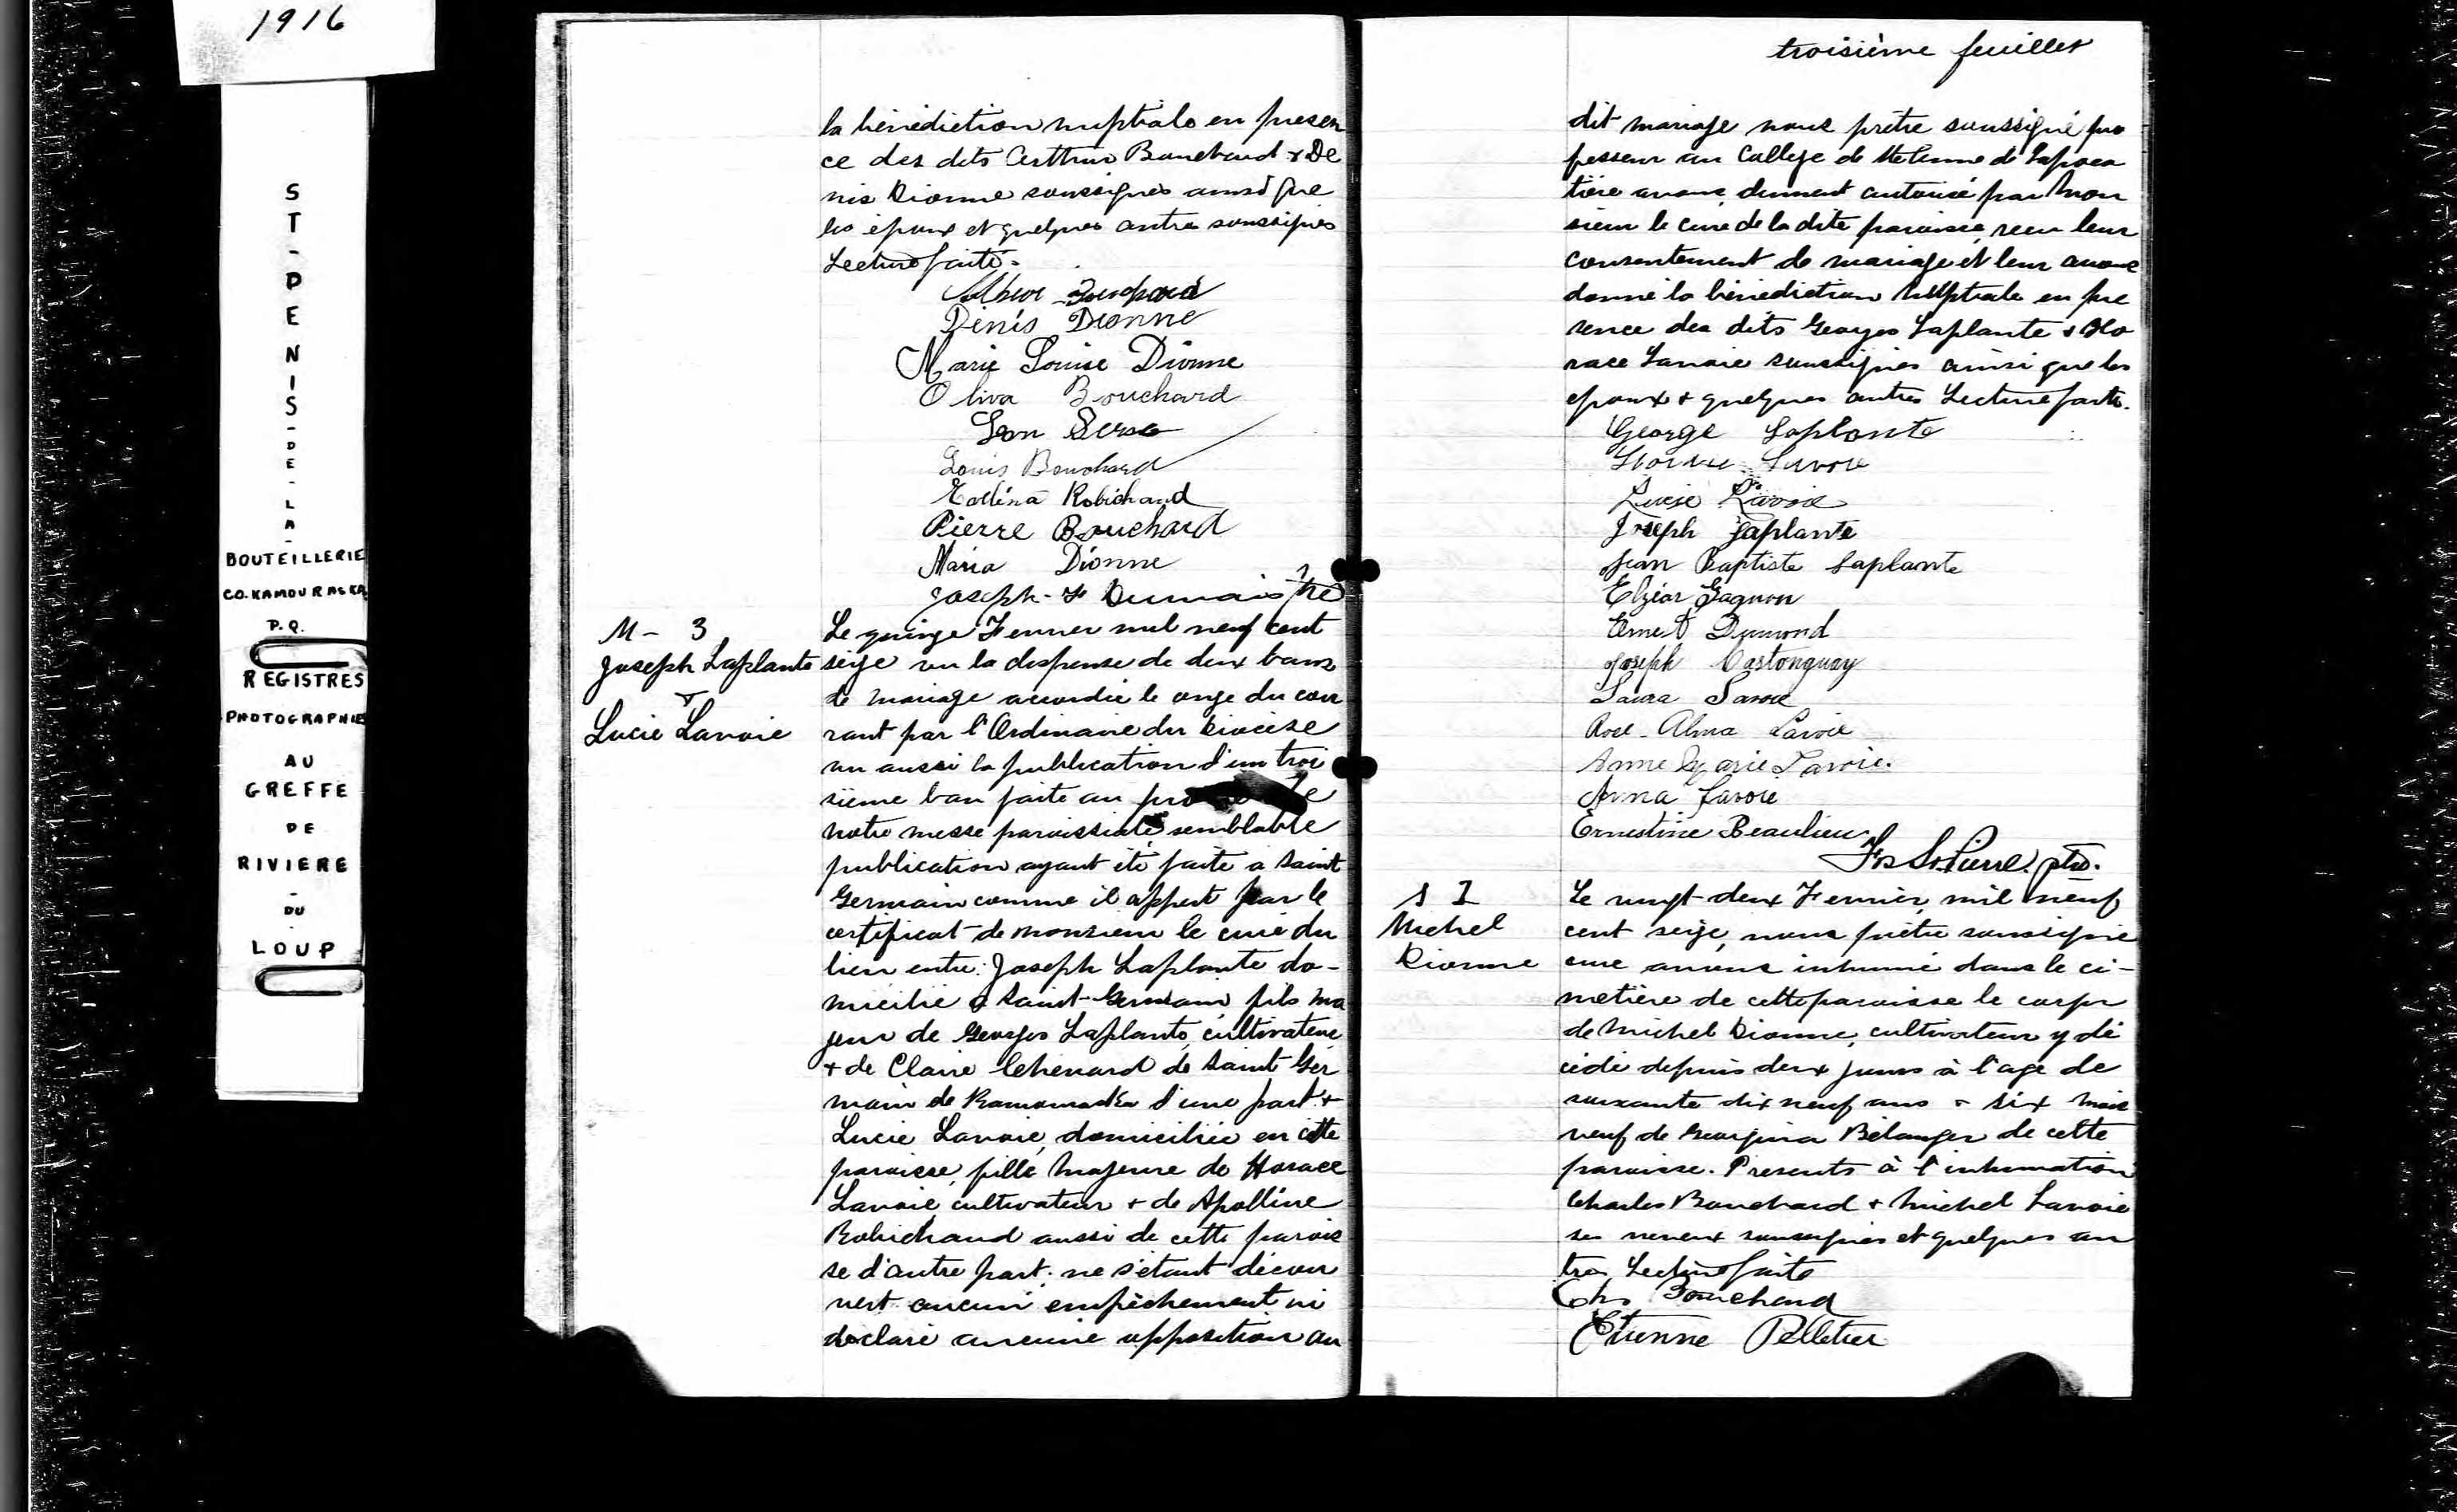 1916
ST-DENIS-DE-LA-
BOUTEILLERIE
CO. KAMOURASKA
P.Q.
REGISTRES
PHOTOGRAPHIES
AU
GREFFE
DE
RIVIERE
-
DU
-
LOUP
la bénédiction nuptiale en presen
ce des dits Arthur Bouchard & De
nis Dionne soussignés ainsi que
les époux et quelques autres soussignés
Lecture faite.
Bouchard
Denis Dionne
Marie Louise Dionne
Oliva Bouchard
Louis Bouchard
Robichaud
Pierre Bouchard
Maria Dionne
Joseph-F Dumais Ptre
M-3
Joseph Laplante
&
Lucie Lavoie
Le quinze Fevrier mil neuf cent
seize vu la dispense de deux bans
de mariage accordée le onze du cou
rant par l'Ordinaire du Diocèse
vu aussi la publication d'un troi
sième ban faite au
notre messe paroissiale, semblable
publication ayant été faite à Saint
Germain comme il appert par le
certificat de monsieur le curé du
lieu entre: Joseph Laplante do-
micilié à Saint-Germain, fils ma
jeur de Georges Laplante, cultivateur
+ de Claire Chenard de Saint Ger
main de Kamouraska d'une part +
Lucie Lavoie, domiciliée en cette
paroisse, fille majeure de Horace
Lavoie cultivateur + de Apolline
Robichaud aussi de cette parois
se d'autre part; ne s'étant décou
vert aucun empêchement ni
declaré aucune opposition au
troisième feuillet
dit mariage nous prêtre soussigné pro
fesseur au College de Ste Anne de Lapoca
tière avons, dument autorisé par Mon
sieur le curé de la dite paroisse, recu leur
consentement de mariage et leur avons
donné la bénédiction nuptiale en pre
sence des dits Georges Laplante & Ho
race Lavoie soussignés ainsi que les
epoux + quelques autres Lecture faite.
George Laplante
Horace Lavoie
Lucie Lavoie
Joseph Laplante
Jean Baptiste Laplante
Elzéar Gagnon
Ernest Dumond
Joseph Castonguay
Laura Lavoie
Rose-Alma Lavoie
Anne Marie Lavoie.
Anna Lavoie
Ernestine Beaulieu
Jos St. Pierre. ptre.
S 1
Michel
Dionne
Le vingt-deux Fevrier, mil neuf
cent seize, nous prêtre soussigné
cure avons inhumé dans le ci-
metière de cette paroisse le corps
de Michel Dionne, cultivateur y dé
cédé depuis deux jours à l'age de
soixante dix neuf ans & six mois
veuf de Georgina Bélanger de cette
paroisse. Presents à l'inhumation
Charles Bouchard + Michel Lavoie
ses neveux soussignés et quelques au
tres Lecture faite
Chs Bouchard
Etienne Pelletier